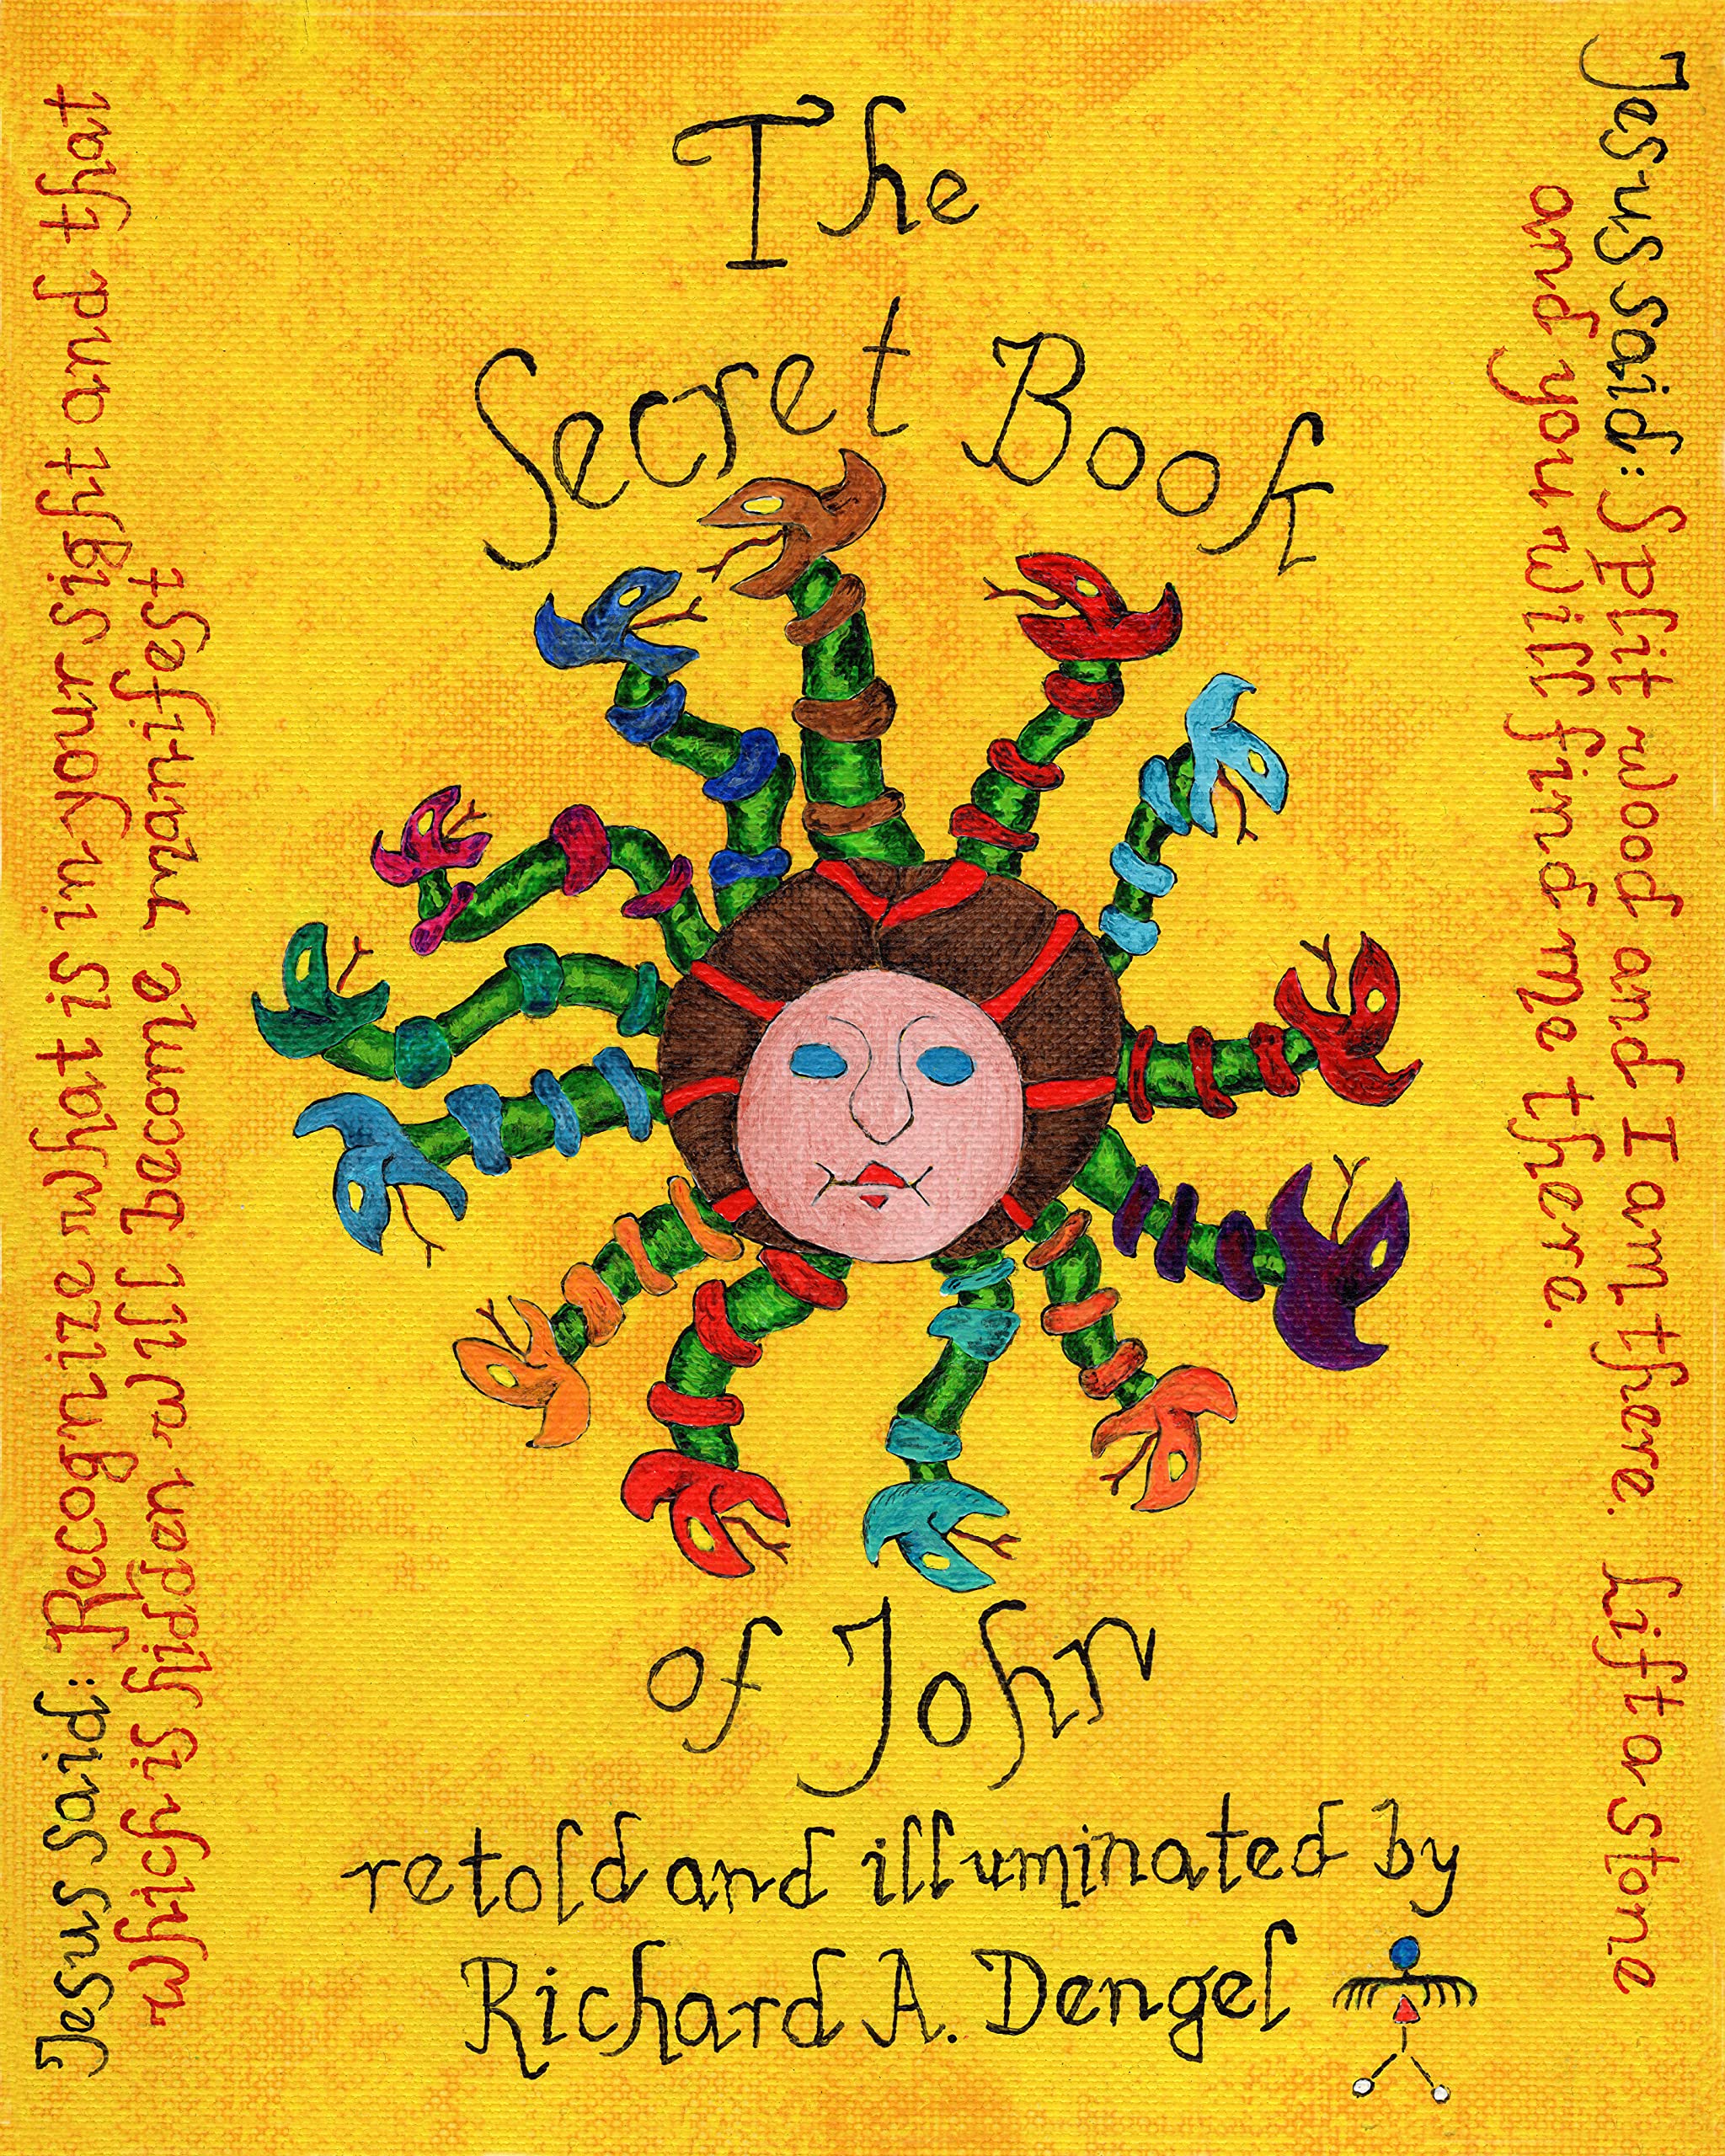 The
Secret Book
of John
retold and illuminated by
Richard A. Dengel
Jesus said: Recognize what is in your sight and that
which is hidden will become manifest
Jesus said: Split wood and I am there. Lift a stone
and you will find me there.